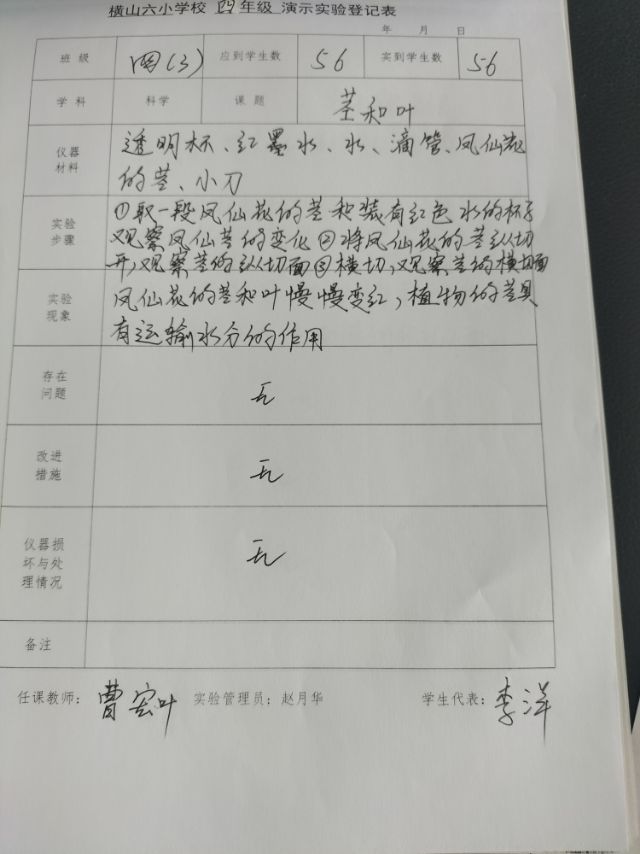 横山六小学校 四 年级 演示实验登记表
年 月 日
班 级 四(3) 应到学生数 56 实到学生数 56
学 科 科学 课 题 茎和叶
仪器材料 透明杯、红墨水、水、滴管、凤仙花
的茎、小刀
实验步骤 ①取一段凤仙花的茎和装有红色水的杯子
观察凤仙茎的变化②将凤仙花的茎纵切
开,观察茎的纵切面③横切,观察茎的横切面
实验现象 凤仙花的茎和叶慢慢变红,植物的茎具
有运输水分的作用
存在问题 无
改进措施 无
仪器损坏与处理情况 无
备注
任课教师: 曹宏叶 实验管理员:赵月华 学生代表: 李洋